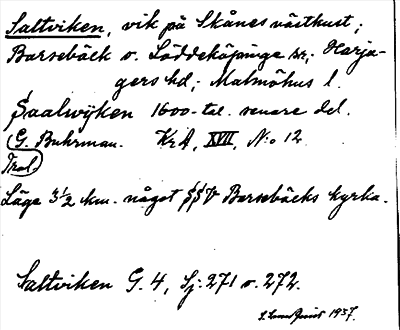 Saltviken, vik på Skånes västkust;
Barsebäck o. Löddeköpinge sn; Harja-
gers hd; Malmöhus l.
Saalwijken 1600-tal. senare del.
G. Buhrman. KrA, XVIII, No 12
Läge 3 1/2 km. något SSV Barsebäcks kyrka.
Saltviken G. 4, Sj. 271 o. 272.
1937.